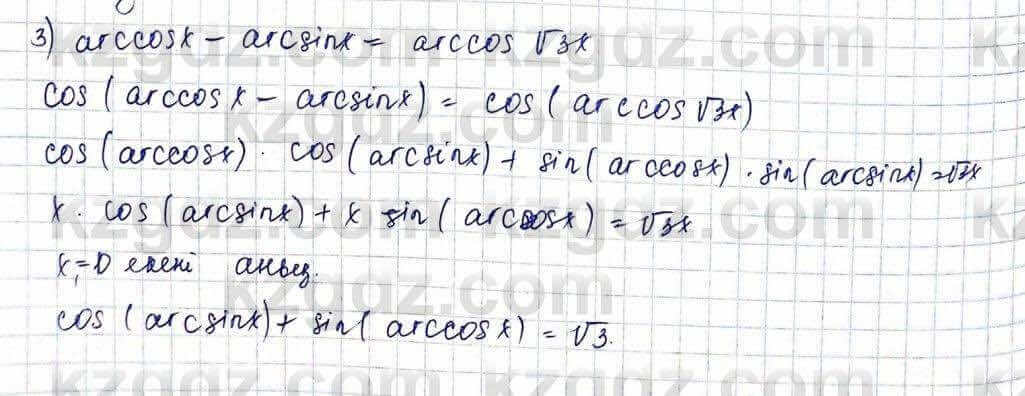 3) arccosx - arcsinx = arccos √3x
cos(arccosx - arcsinx) = cos(arccos√3x)
cos(arccosx) · cos(arcsinx) + sin(arccosx) · sin(arcsinx) = √3x
x · cos(arcsinx) + x sin(arccosx) = √3x
x₁=0 екені анық.
cos(arcsinx) + sin(arccosx) = √3.
kzgdz.com